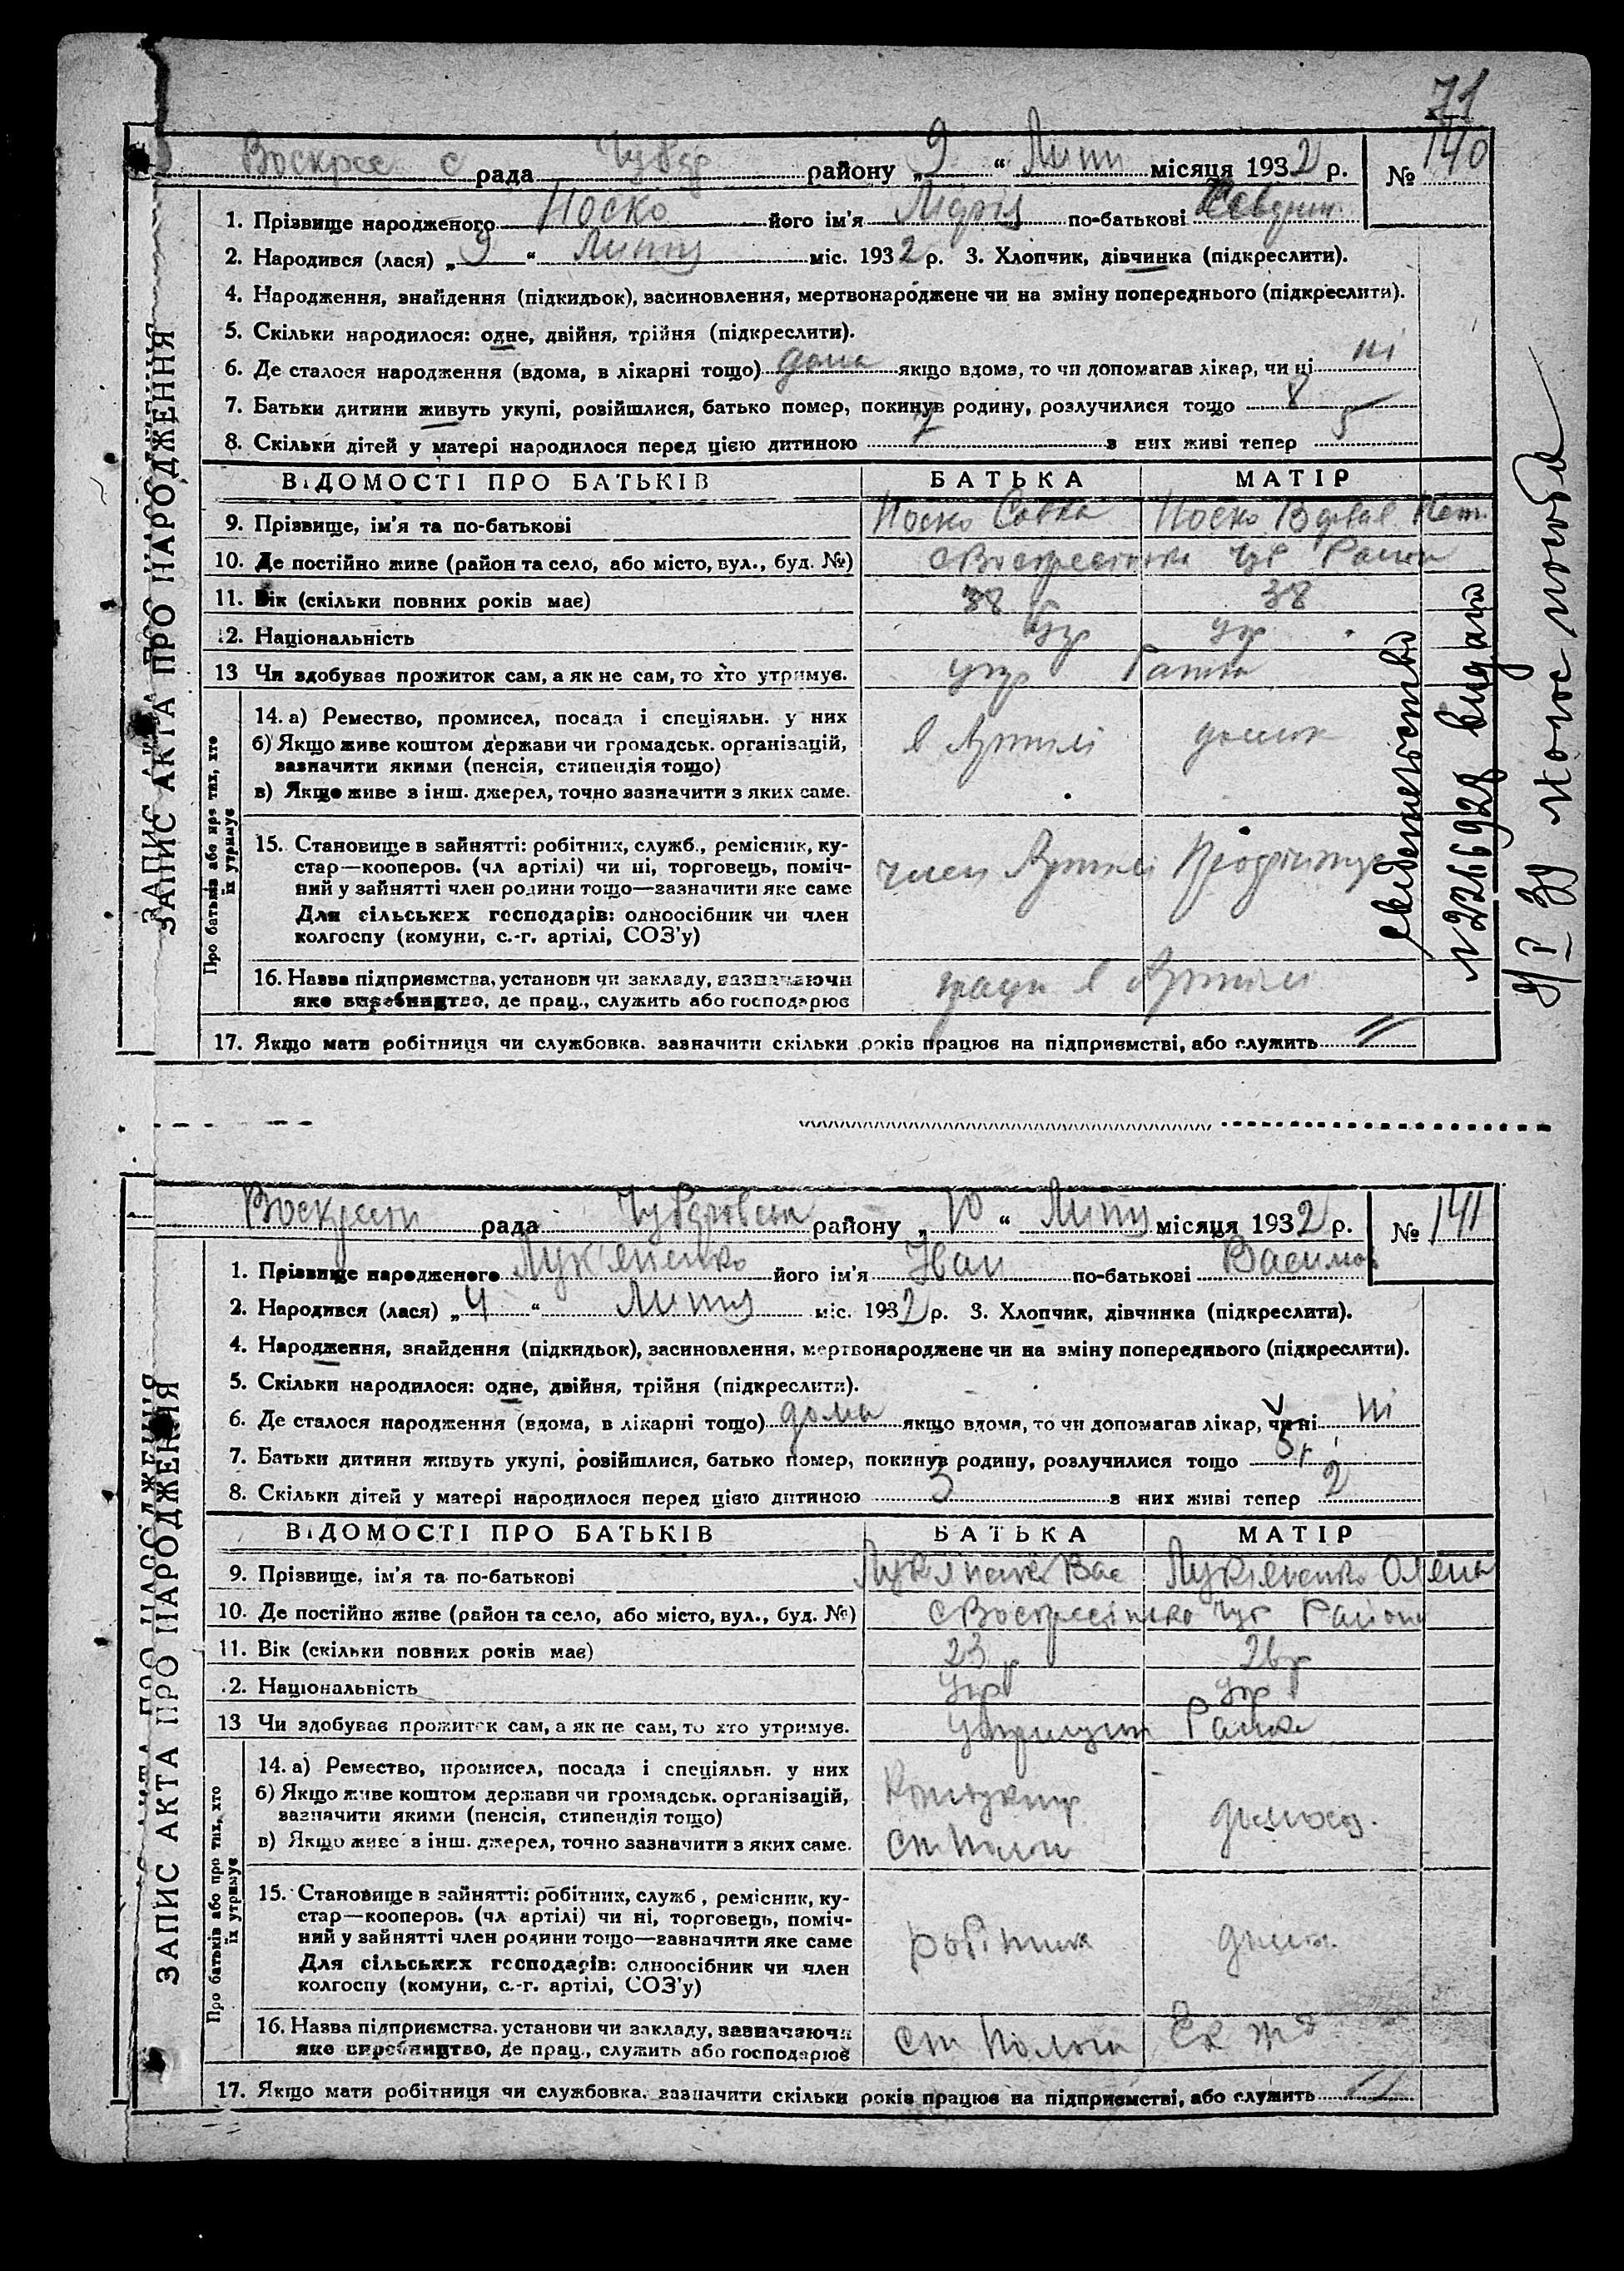 71
Воскрес с рада Чубар району „9“ Липн місяця 1932 р. № 140
1. Прізвище народженого Носко його ім'я по-батькові
2. Народився (лася) „9“ Липня міс. 1932 р. 3. Хлопчик, дівчинка (підкреслити).
4. Народження, знайдення (підкидьок), засиновлення, мертвонароджене чи на зміну попереднього (підкреслити).
5. Скільки народилося: одне, двійня, трійня (підкреслити).
6. Де сталося народження (вдома, в лікарні тощо) дома якщо вдома, то чи допомагав лікар, чи ні ні
7. Батьки дитини живуть укупі, розійшлися, батько помер, покинув родину, розлучилися тощо 8
8. Скільки дітей у матері народилося перед цією дитиною 7 з них живі тепер 5
ВІДОМОСТІ ПРО БАТЬКІВ БАТЬКА МАТІР
9. Прізвище, ім'я та по-батькові Носко Савка Носко
10. Де постійно живе (район та село, або місто, вул., буд. №) с Воскресінка Чуб Района
11. Вік (скільки повних років має) 38 38
12. Національність Укр Укр
13 Чи здобуває прожиток сам, а як не сам, то хто утримує.
14. а) Ремество, промисел, посада і спеціяльн. у них
б) Якщо живе коштом держави чи громадськ. організацій, в Артилі
зазначити якими (пенсія, стипендія тощо)
в) Якщо живе з інш. джерел, точно зазначити з яких саме.
15. Становище в зайнятті: робітник, служб., ремісник, ку-
стар—кооперов. (чл артілі) чи ні, торговець, поміч- член Артилі
ний у зайнятті член родини тощо—зазначити яке саме
Для сільських господарів: одноосібник чи член
колгоспу (комуни, с.-г. артілі, СОЗ'у)
16. Назва підприємства, установи чи закладу, зазначаючи в Артилі
яке виробництво, де прац., служить або господарює
17. Якщо мати робітниця чи службовка, зазначити скільки років працює на підприємстві, або служить
Про батьків або про тих, хто
їх утримує
ЗАПИС АКТА ПРО НАРОДЖЕННЯ
свидетельство
выдано
Воскресен рада Чубаровськ району „10“ Липня місяця 1932 р. № 141
1. Прізвище народженого Лук'яненко його ім'я Іван по-батькові Васильов
2. Народився (лася) „4“ Липня міс. 1932 р. 3. Хлопчик, дівчинка (підкреслити).
4. Народження, знайдення (підкидьок), засиновлення, мертвонароджене чи на зміну попереднього (підкреслити).
5. Скільки народилося: одне, двійня, трійня (підкреслити).
6. Де сталося народження (вдома, в лікарні тощо) дома якщо вдома, то чи допомагав лікар, чи ні ні
7. Батьки дитини живуть укупі, розійшлися, батько помер, покинув родину, розлучилися тощо
8. Скільки дітей у матері народилося перед цією дитиною 3 з них живі тепер 2
ВІДОМОСТІ ПРО БАТЬКІВ БАТЬКА МАТІР
9. Прізвище, ім'я та по-батькові Лукяненко Вас Лукяненко Олена
10. Де постійно живе (район та село, або місто, вул., буд. №) с Воскресінка Чуб Района
11. Вік (скільки повних років має) 23 р 26 р
12. Національність Укр Укр
13 Чи здобуває прожиток сам, а як не сам, то хто утримує.
14. а) Ремество, промисел, посада і спеціяльн. у них
б) Якщо живе коштом держави чи громадськ. організацій, Кондуктор
зазначити якими (пенсія, стипендія тощо) домогос.
в) Якщо живе з інш. джерел, точно зазначити з яких саме. ст Пологи
15. Становище в зайнятті: робітник, служб., ремісник, ку-
стар—кооперов. (чл артілі) чи ні, торговець, поміч-
ний у зайнятті член родини тощо—зазначити яке саме робітник
Для сільських господарів: одноосібник чи член
колгоспу (комуни, с.-г. артілі, СОЗ'у)
16. Назва підприємства, установи чи закладу, зазначаючи ст Пологи Ек жд
яке виробництво, де прац., служить або господарює
17. Якщо мати робітниця чи службовка, зазначити скільки років працює на підприємстві, або служить
Про батьків або про тих, хто
їх утримує
ЗАПИС АКТА ПРО НАРОДЖЕННЯ